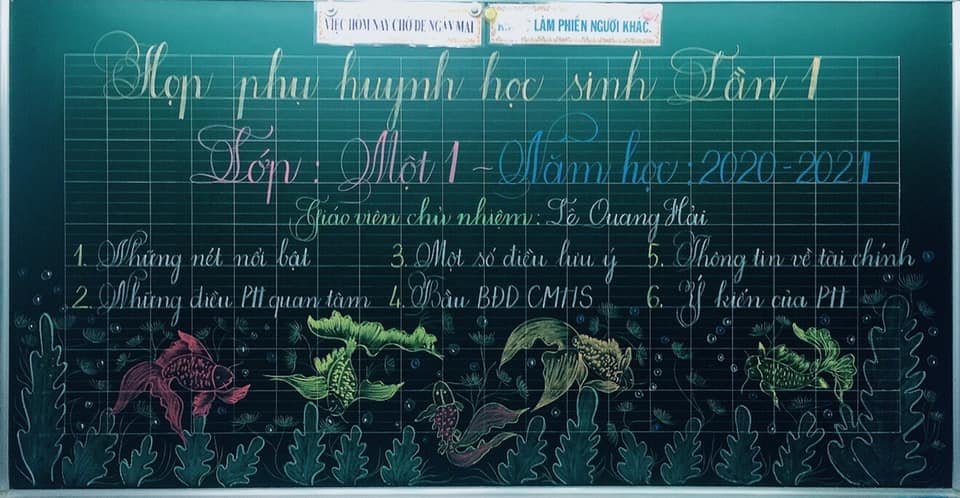 VIỆC HÔM NAY CHỚ ĐỂ NGÀY MAI
LÀM PHIỀN NGƯỜI KHÁC.
Họp phụ huynh học sinh Lần 1
Lớp : Một 1 - Năm học : 2020 - 2021
Giáo viên chủ nhiệm : Lê Quang Hải
1. Những nét nổi bật
2. Những điều PH quan tâm
3. Một số điều lưu ý
4. Bầu BĐD CMHS
5. Thông tin về tài chính
6. Ý kiến của PH